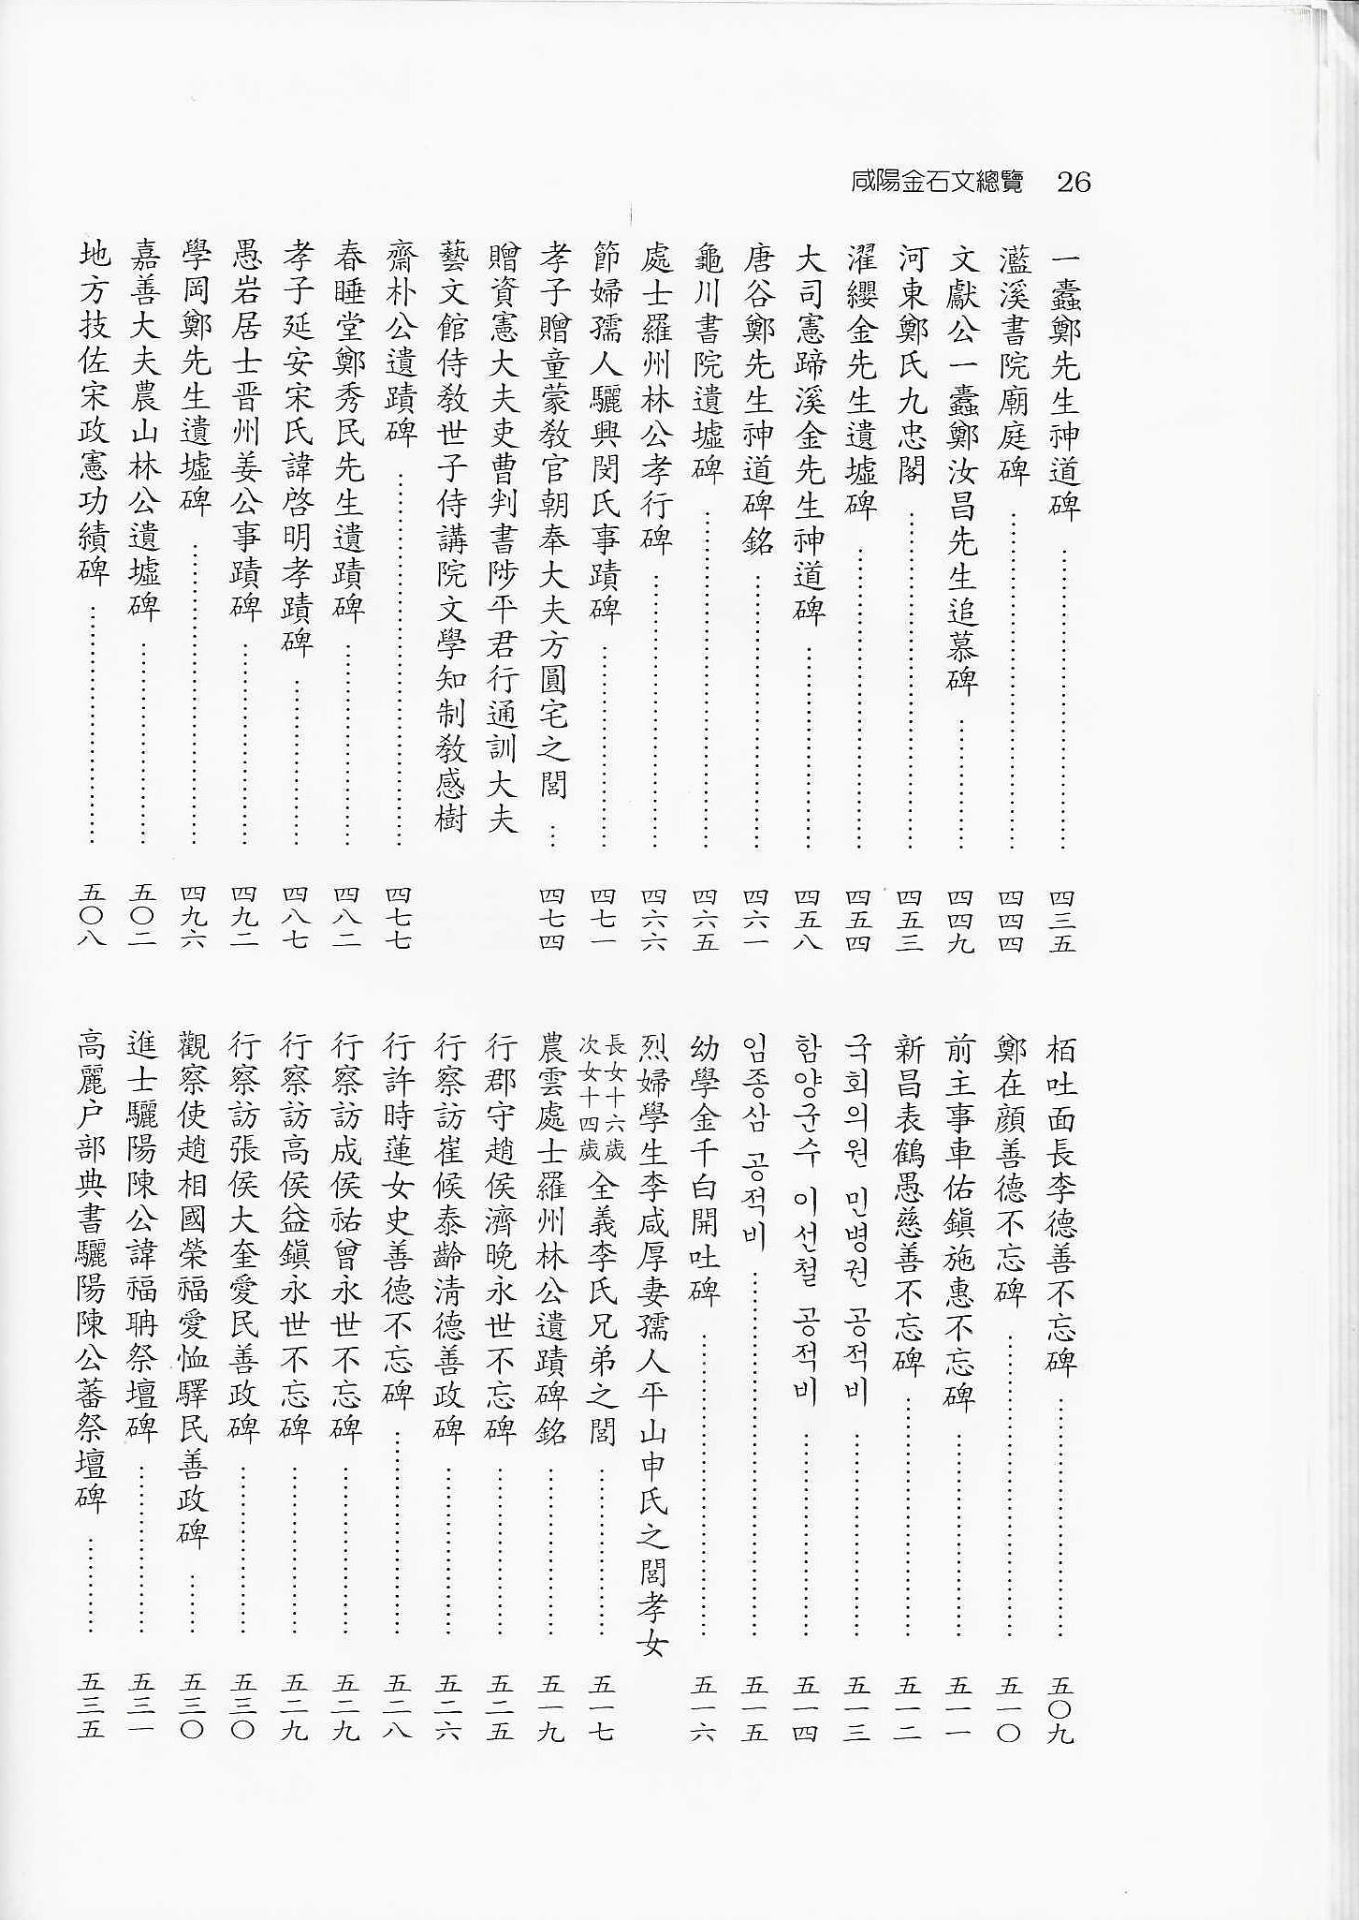 咸陽金石文總覽 26
一蠹鄭先生神道碑 四三五
灆溪書院廟庭碑 四四四
文獻公一蠹鄭汝昌先生追慕碑 四四九
河東鄭氏九忠閣 四五三
濯纓金先生遺墟碑 四五四
大司憲蹄溪金先生神道碑 四五八
唐谷鄭先生神道碑銘 四六一
龜川書院遺墟碑 四六五
處士羅州林公孝行碑 四六六
節婦孺人驪興閔氏事蹟碑 四七一
孝子贈童蒙敎官朝奉大夫方圓宅之閭 四七四
贈資憲大夫吏曹判書陟平君行通訓大夫
藝文館侍敎世子侍講院文學知制敎感樹
齋朴公遺蹟碑 四七七
春睡堂鄭秀民先生遺蹟碑 四八二
孝子延安宋氏諱啓明孝蹟碑 四八七
愚岩居士晋州姜公事蹟碑 四九二
學岡鄭先生遺墟碑 四九六
嘉善大夫農山林公遺墟碑 五〇二
地方技佐宋政憲功績碑 五〇八
栢吐面長李德善不忘碑 五〇九
鄭在顔善德不忘碑 五一〇
前主事車佑鎭施惠不忘碑 五一一
新昌表鶴愚慈善不忘碑 五一二
국회의원 민병권 공적비 五一三
함양군수 이선철 공적비 五一四
임종삼 공적비 五一五
幼學金千白開吐碑 五一六
烈婦學生李咸厚妻孺人平山申氏之閭孝女
長女十六歲
次女十四歲
全義李氏兄弟之閭 五一七
農雲處士羅州林公遺蹟碑銘 五一九
行郡守趙侯濟晩永世不忘碑 五二五
行察訪崔候泰齡淸德善政碑 五二六
行許時蓮女史善德不忘碑 五二八
行察訪成侯祐曾永世不忘碑 五二九
行察訪高侯益鎭永世不忘碑 五二九
行察訪張侯大奎愛民善政碑 五三〇
觀察使趙相國榮福愛恤驛民善政碑 五三〇
進士驪陽陳公諱福聃祭壇碑 五三一
高麗户部典書驪陽陳公蕃祭壇碑 五三五